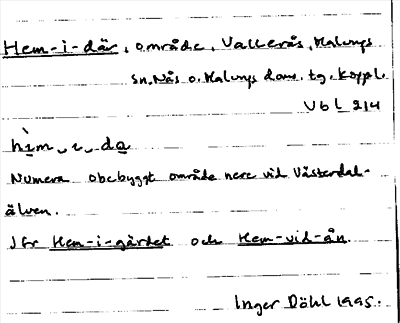 Hem-i-där, område, Vallerås, Malungs
sn, Nås o. Malungs doms. tg, Koppl.
Vbl 214
hìm ̮ ɩ ̮ da
Numera obebyggt område nere vid Västerdal-
älven.
Jfr Hem-i-gärdet och Hem-vid-ån.
Inger Döhl 1995.